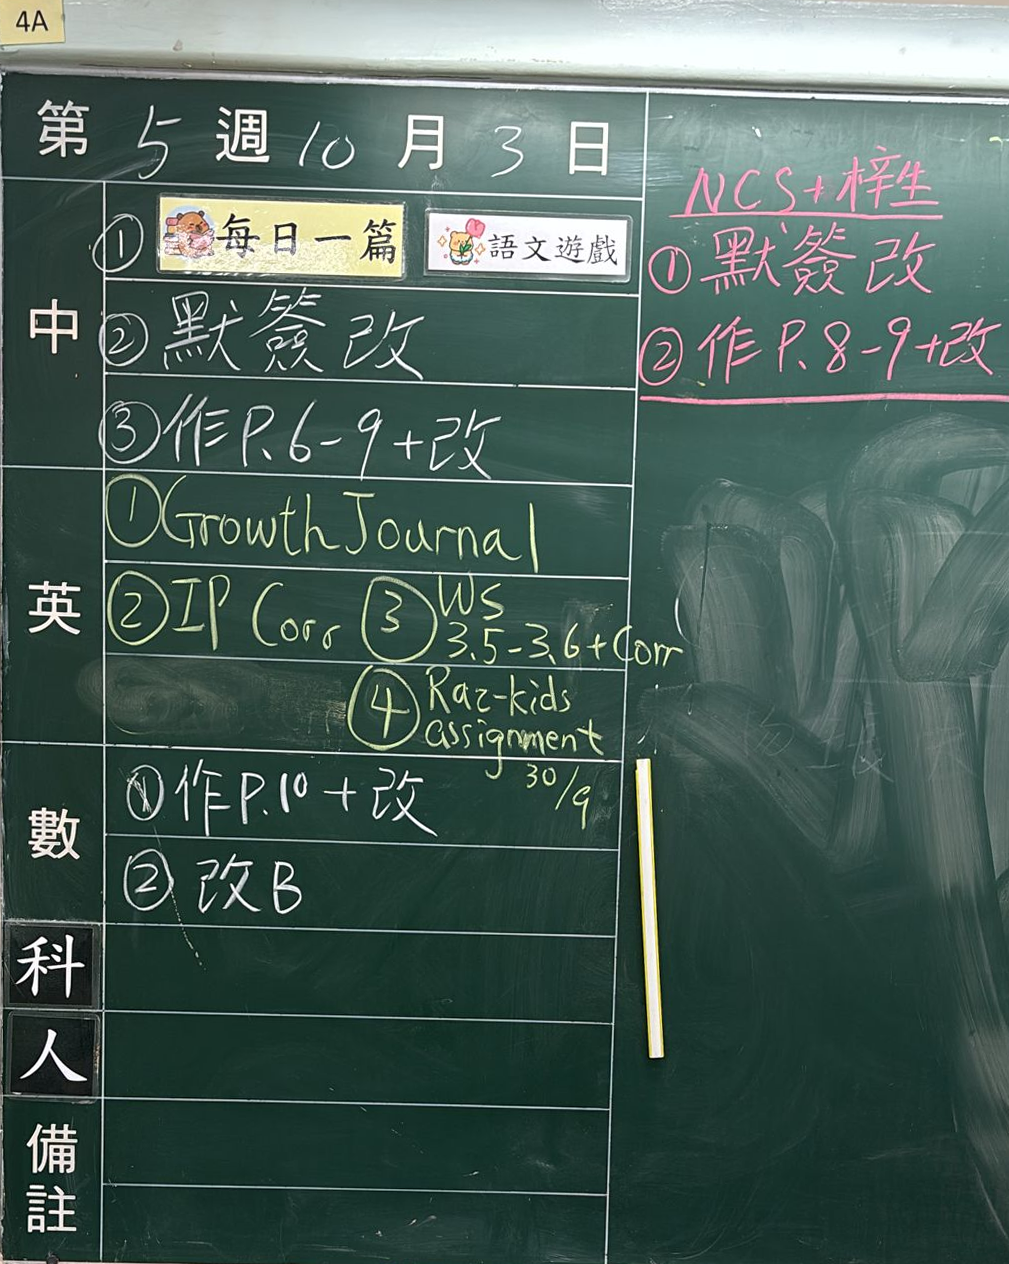 4A
第 5 週 10 月 3 日
中
① 每日一篇 語文遊戲
② 默簽改
③ 作P.6-9+改
英
① Growth Journal
② IP Corr ③ WS 3.5-3.6+Corr
④ Raz-kids assignment
30/9
數
① 作P.10+改
② 改B
科
人
備註
NCS+梓生
① 默簽改
② 作P.8-9+改